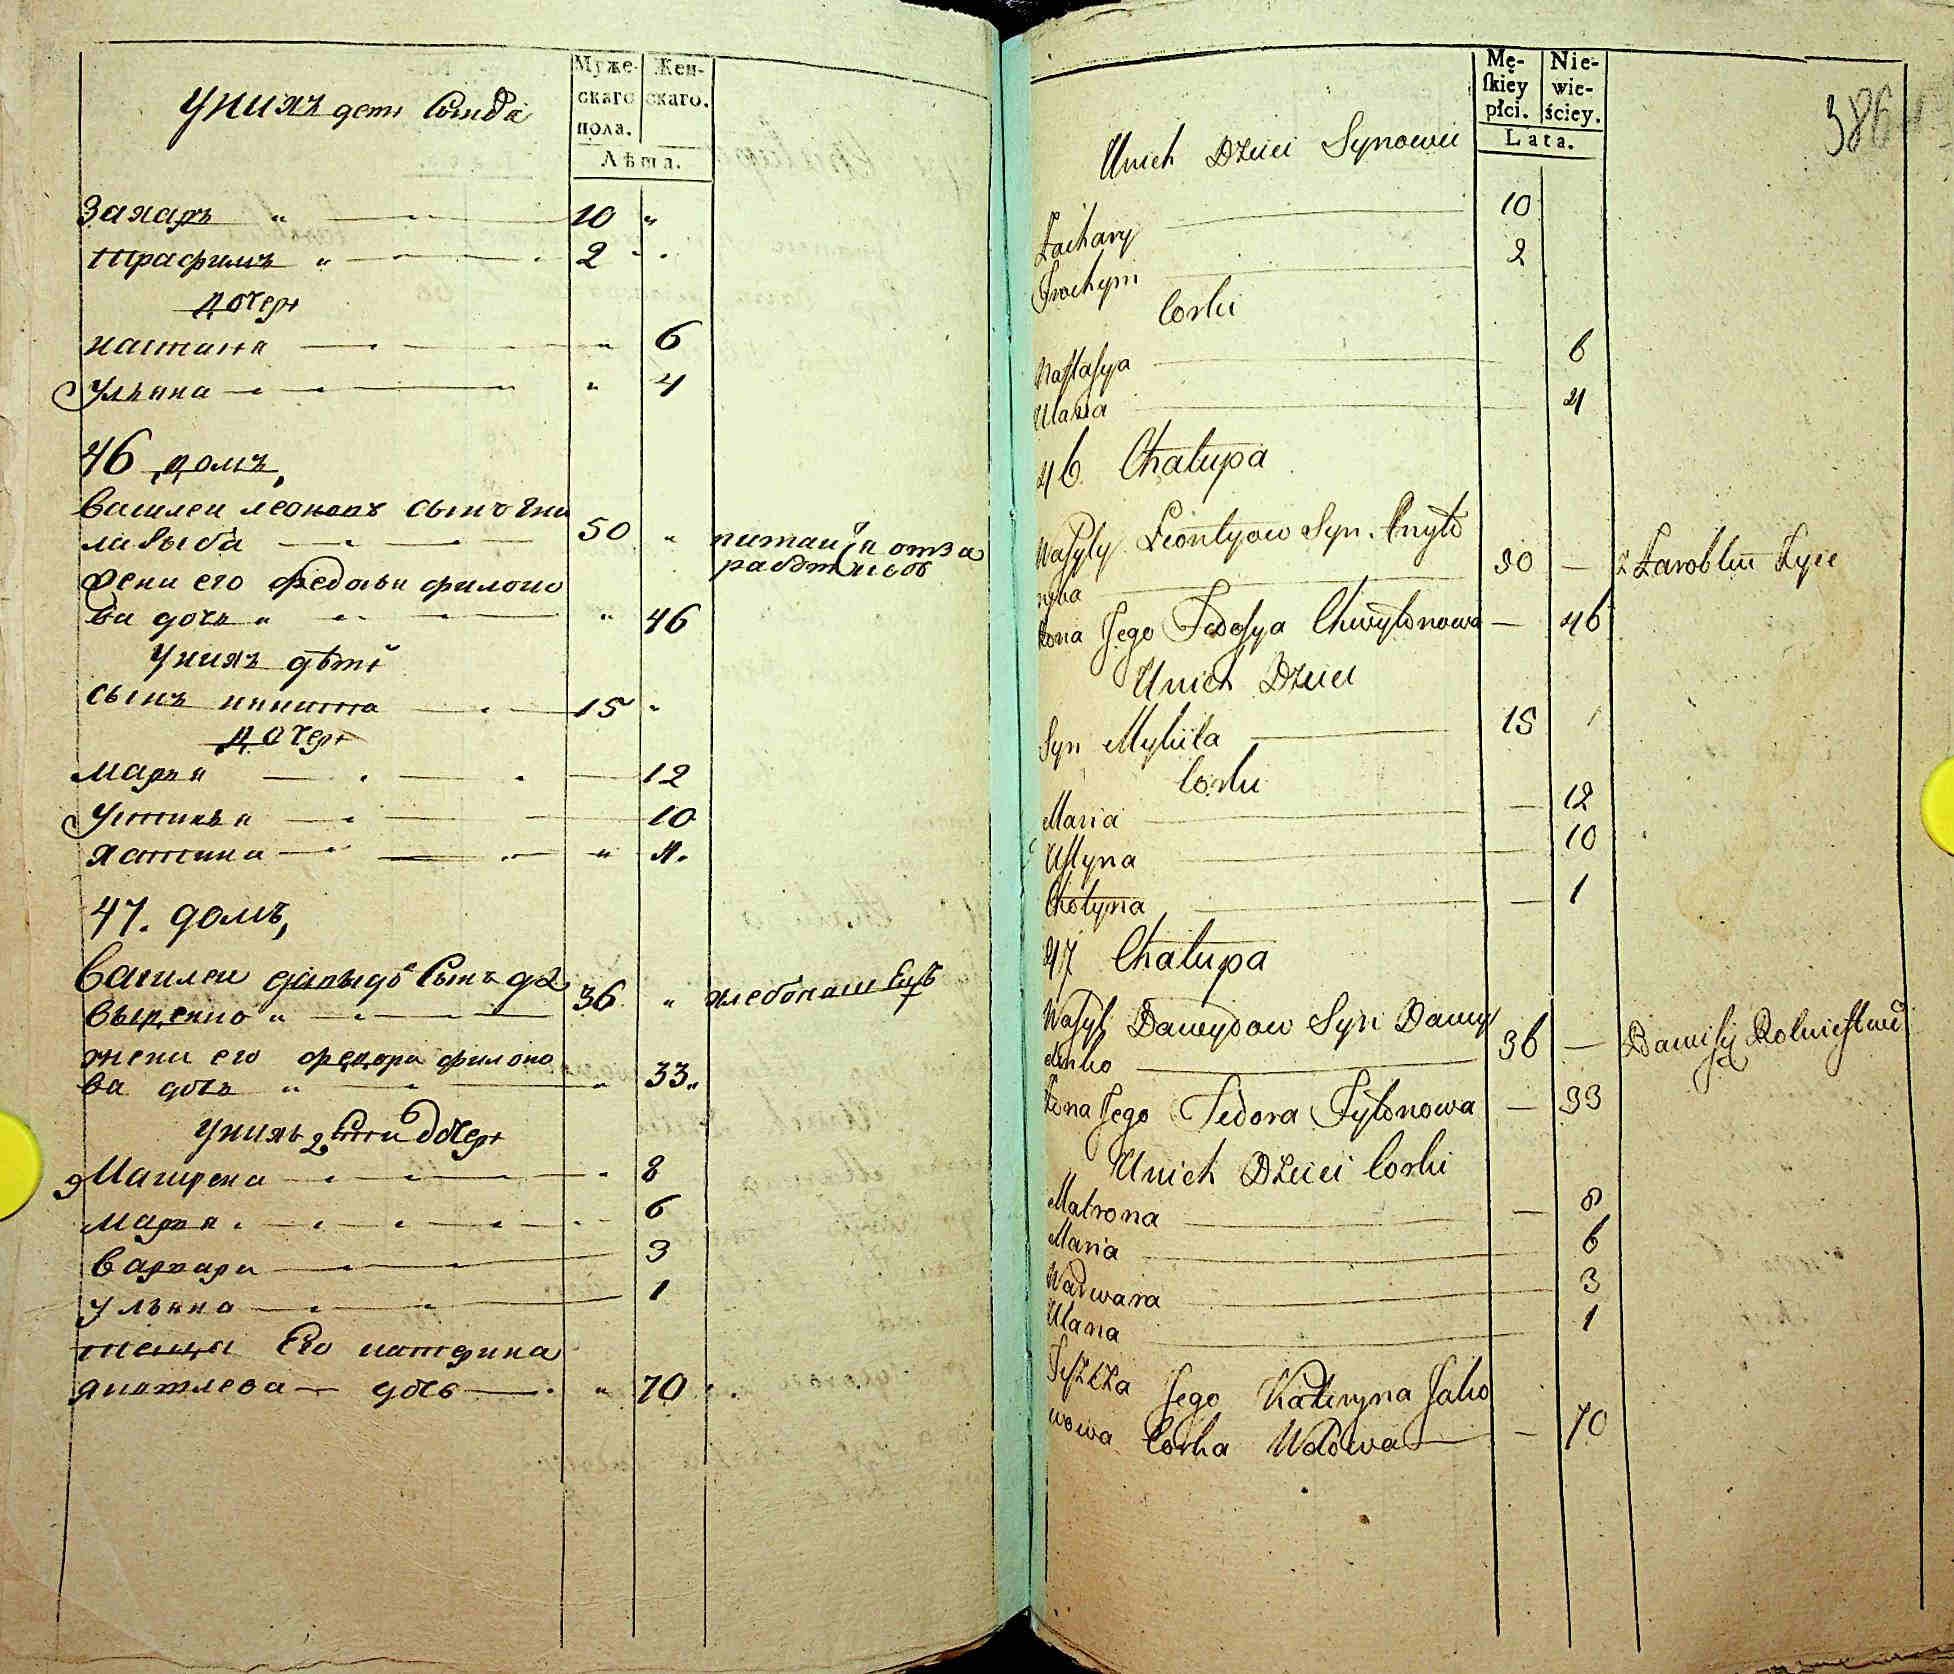 Муже-
скаго
пола.
Жен-
скаго.
Лѣта.
Унихъ дети
Захаръ 10
трафимъ 2
дочери
настася 6
Ульяна 4
46 домъ,
василеи леоновъ сынъ гни
лаѣыба 50 питаится отза
работковъ
жена его федосья филоно
ва дочь 46
Унихъ дѣти
сынъ никита 15
дочери
марья 12
устинья 10
хатина
47. домъ,
Василеи давыдовъ Сынъ да
выденко 36 хлебопашецъ
жена его федора филоно
ва дочь 33
Унихъ дочери
Матрена 8
марья 6
варвара 3
ульяна 1
теща Его катерина
яковлева дочь 70
386
Mę-
ſkiey
płci.
Nie-
wie-
ściey.
Lata.
Unich Dzieci Synowie
Zachary 10
Trochym 2
Corki
Naſtaſya 6
Ulana 4
46 Chałupa
Waſyly Leontyow Syn Gnyło
ryba 50 z Zaroblku Zyie
Żona Jego Fedoſya Chwyłonowa 46
Unich Dzieci
Syn Mykita 15
Corki
Maria 12
Uſtyna 10
Chotyna 1
47 Chałupa
Waſyl Dawydow Syn Dawy
denko 36 Bawiſię Rolnictwem
Żona Jego Fedora Fyłonowa 33
Unich Dzieci Corki
Matrona 8
Maria 6
Warwara 3
Ulana 1
Teſzcza Jego Kateryna Jako
wowa Corka Wdowa 70